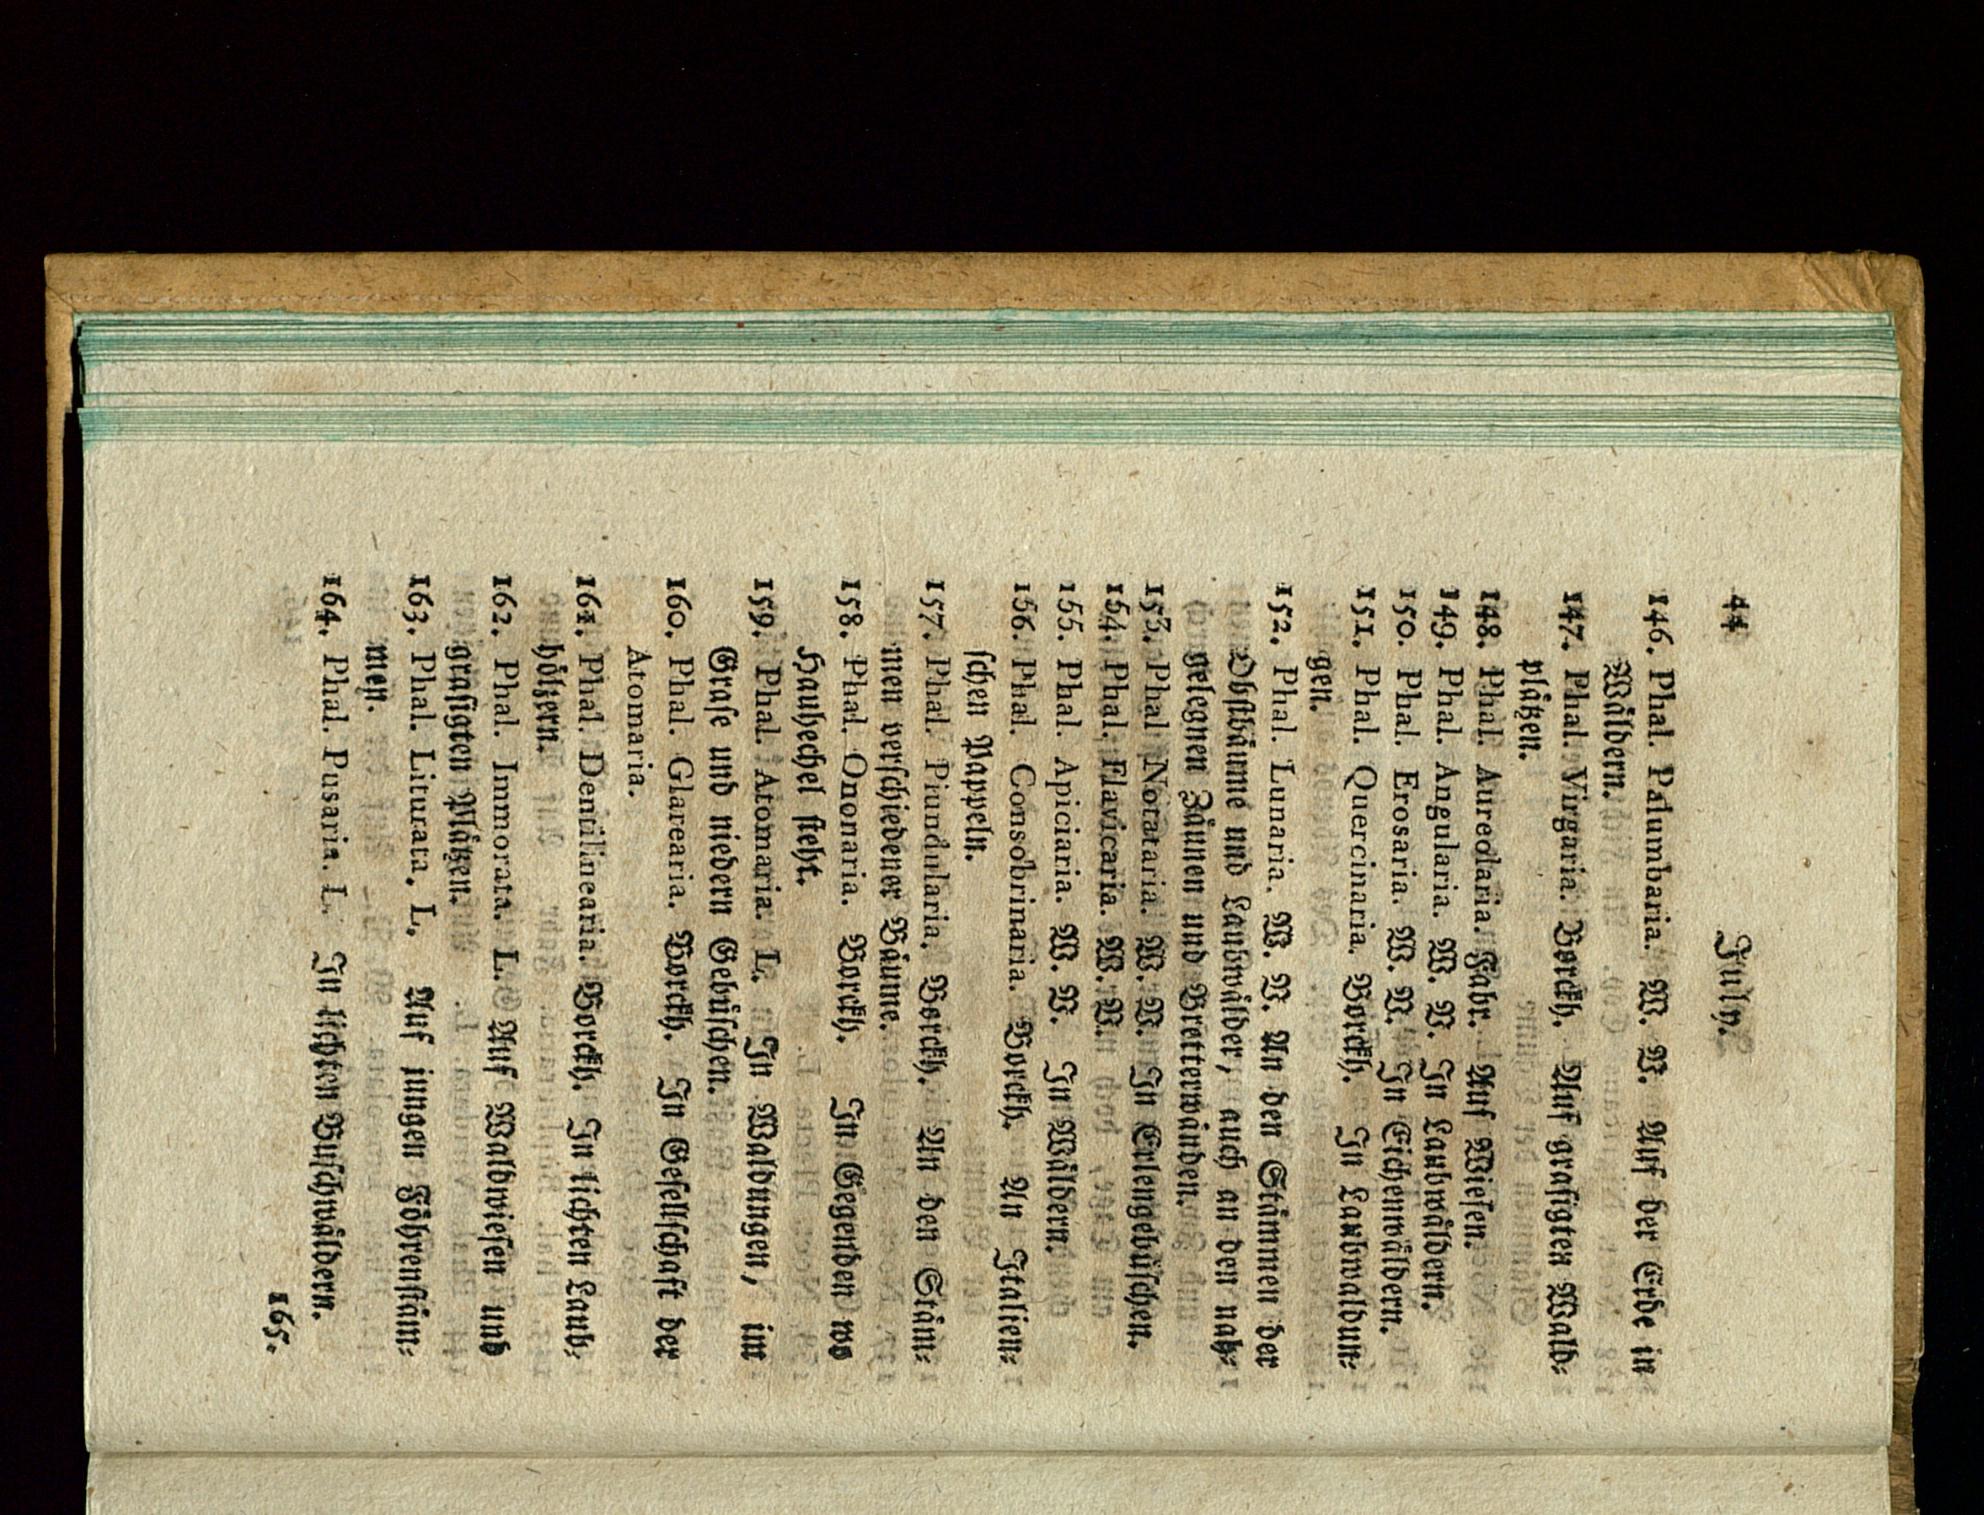 44 July.
146. Phal. Palumbaria. W. V. Auf der Erde in
Wäldern.
147. Phal. Virgaria. Borckh. Auf grasigten Wald-
plätzen.
148. Phal. Aureolaria. Fabr. Auf Wiesen.
149. Phal. Angularia. W. V. In Laubwäldern.
150. Phal. Erosaria. W. V. In Eichenwäldern.
151. Phal. Quercinaria. Borckh. In Laubwaldun-
gen.
152. Phal. Lunaria. W. V. An den Stämmen der
Obstbäume und Laubwälder, auch an den nah-
gelegnen Zäunen und Bretterwänden.
153. Phal Notataria. W. V. In Erlengebüschen.
154. Phal. Flavicaria. W. V.
155. Phal. Apiciaria. W. V. In Wäldern.
156. Phal. Consobrinaria. Borckh. An Italien-
schen Pappeln.
157. Phal. Piundularia. Borckh. An den Stäm-
men verschiedener Bäume.
158. Phal. Ononaria. Borckh. In Gegenden wo
Hauhechel steht.
159. Phal. Atomaria. L. In Waldungen, im
Grase und niedern Gebüschen.
160. Phal. Glarearia. Borckh. In Gesellschaft der
Atomaria.
161. Phal. Dentilinearia. Borckh. In lichten Laub-
hölzern.
162. Phal. Immorata. L. Auf Waldwiesen und
grasigten Plätzen.
163. Phal. Liturata. L. Auf jungen Föhrenstäm-
men.
164. Phal. Pusaria. L. In lichten Buschwäldern.
165.